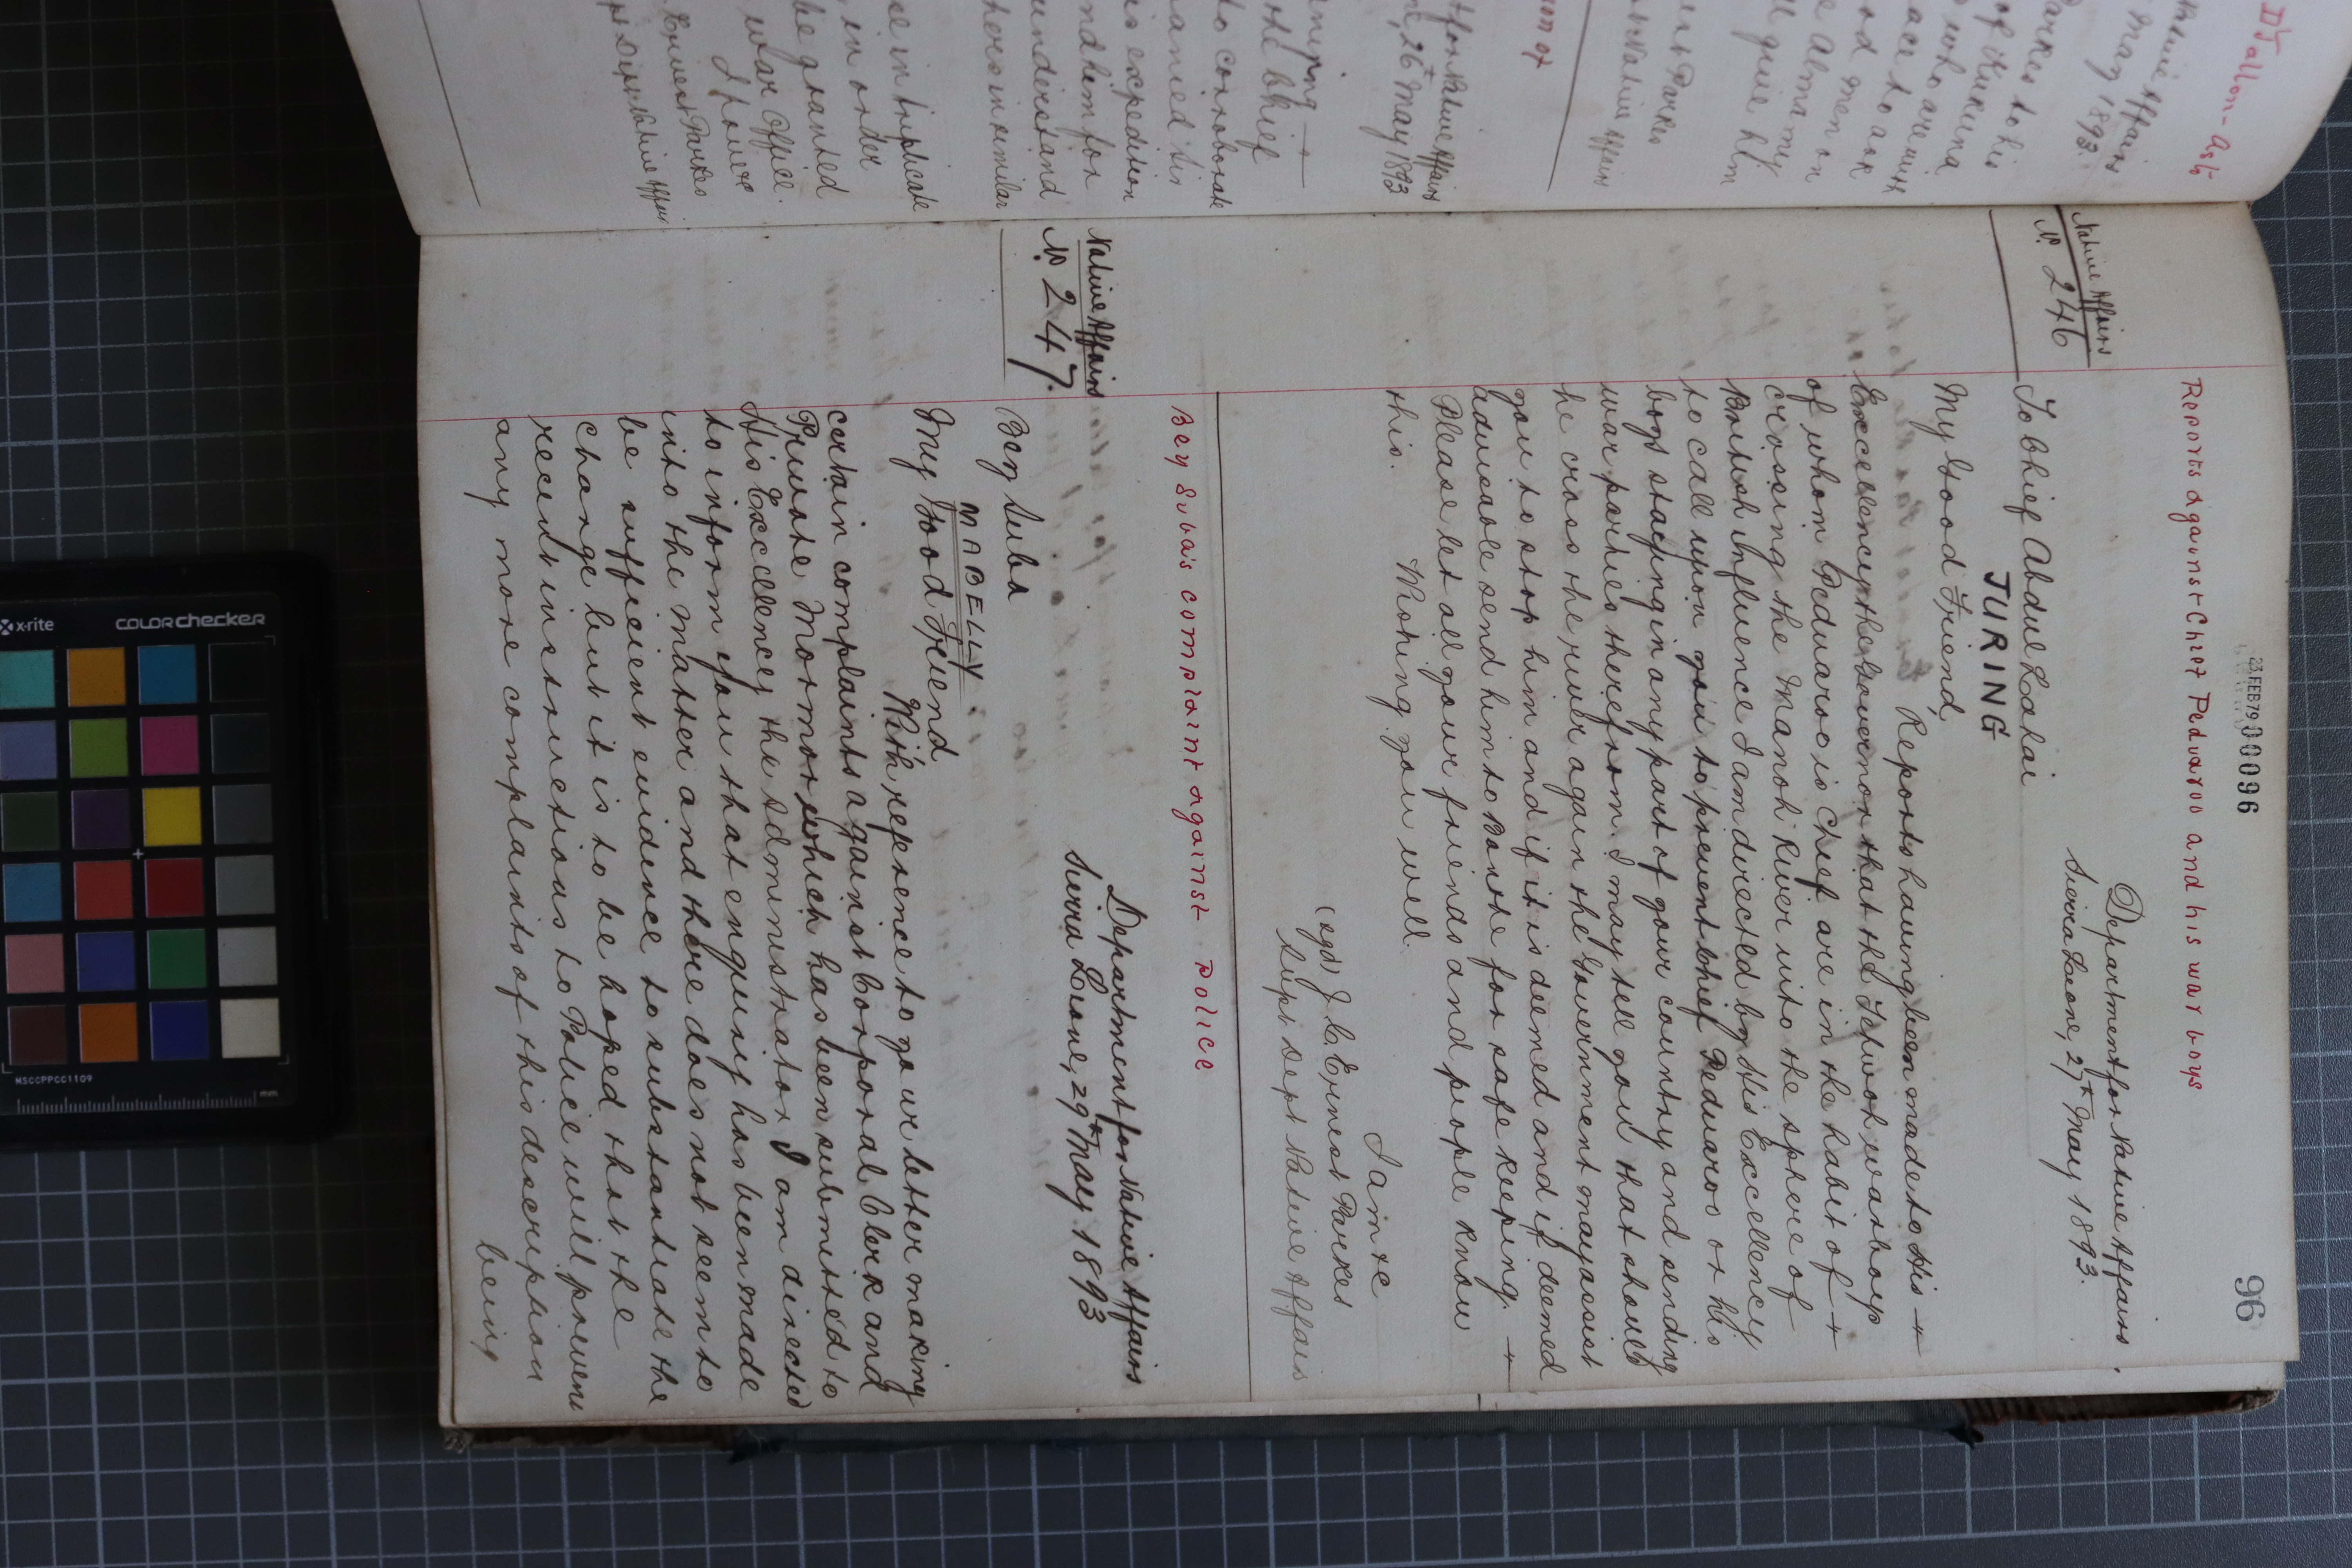 23 FEB 79 00096
96
Reports against Chief Peduaroo and his war boys
Department for Native Affairs.
Sierra Leone, 27th May 1893.
Native Affairs
No. 246
To Chief Abdul Lahai
JURING
My Good Friend,
Reports having been made to His
Excellency the Governor that the Tehwoh war boys
of whom Peduaroo is Chief are in the habit of
crossing the Manoh River into the sphere of
British influence I am directed by His Excellency
to call upon you to prevent Chief Peduaroo or his
boys stopping in any part of your country and sending
war parties therefrom. I may tell you that should
he cross the river again the Government may assist
you to stop him and if it is deemed and if deemed
advisable send him to Bonthe for safe keeping.
Please let all your friends and people know
this.
Wishing you well.
I am &c
(sgd) J. C. Ernest Parkes
Supt Dept Native Affairs
Bey Suba's complaint against Police
Department for Native Affairs
Sierra Leone, 29th May 1893
Native Affairs
No. 247.
Bey Suba
MABELLY.
My Good Friend
With reference to your letter making
certain complaints against Corporal Clerk and
Private Mormor which has been submitted to
His Excellency the Administrator I am directed
to inform you that enquiry has been made
into the matter and there does not seem to
be sufficient evidence to substantiate the
charge but it is to be hoped that the
recent instructions to Police will prevent
any more complaints of this description
being
D. Fallon-
Native Affairs
May 1893.
Parkes to his
who are
to ask
good men on
give him
Parkes
Native Affairs
for Native Affairs
26th May 1893
the Chief
to corroborate
his expedition
and him for
understand
others in similar
in triplicate
in order
be granted
War Office.
I have &c
Ernest Parkes
Dept Native Affairs
x-rite
colorchecker
MSCCPPCC1109
mm